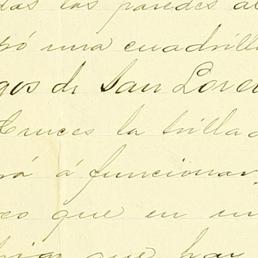 das las paredes al
pó una cuadrilla
gos de San Loren
Cruces la trilla
rá á funcionar
co que en un
que han